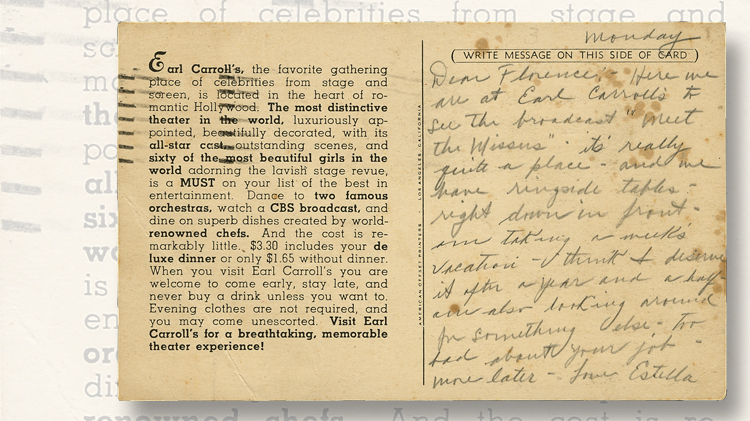 place of celebrities from stage and
Earl Carroll's, the favorite gathering
place of celebrities from stage and
screen, is located in the heart of ro-
mantic Hollywood. The most distinctive
theater in the world, luxuriously ap-
pointed, beautifully decorated, with its
all-star cast, outstanding scenes, and
sixty of the most beautiful girls in the
world adorning the lavish stage revue,
is a MUST on your list of the best in
entertainment. Dance to two famous
orchestras, watch a CBS broadcast, and
dine on superb dishes created by world-
renowned chefs. And the cost is re-
markably little. $3.30 includes your de
luxe dinner or only $1.65 without dinner.
When you visit Earl Carroll's you are
welcome to come early, stay late, and
never buy a drink unless you want to.
Evening clothes are not required, and
you may come unescorted. Visit Earl
Carroll's for a breathtaking, memorable
theater experience!
AMERICAN OFFSET PRINTERS · LOS ANGELES, CALIFORNIA
Monday
(WRITE MESSAGE ON THIS SIDE OF CARD)
Dear Florence:- Here we
are at Earl Carroll's to
see the broadcast "Meet
the Missus"- it's really
quite a place - and we
have ringside tables -
right down in front -
am taking a week's
vacation - think I deserve
it after a year and a half -
am also looking around
for something else - too
bad about your job -
more later - Love Estella
renowned chefs. And the cost is re-